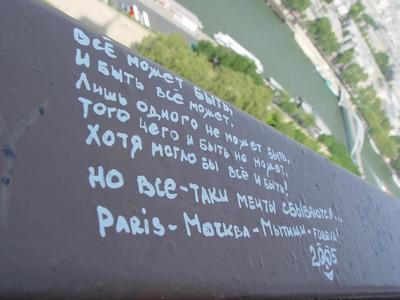 ВСЁ МОЖЕТ БЫТЬ,
И БЫТЬ ВСЁ МОЖЕТ.
ЛИШЬ ОДНОГО НЕ МОЖЕТ БЫТЬ,
ТОГО ЧЕГО И БЫТЬ НЕ МОЖЕТ,
ХОТЯ МОГЛО БЫ ВСЁ И БЫТЬ!
НО ВСЕ-ТАКИ МЕЧТЫ СБЫВАЮТСЯ...
PARIS-МОСКВА-МЫТИЩИ-FOREVA!
2005